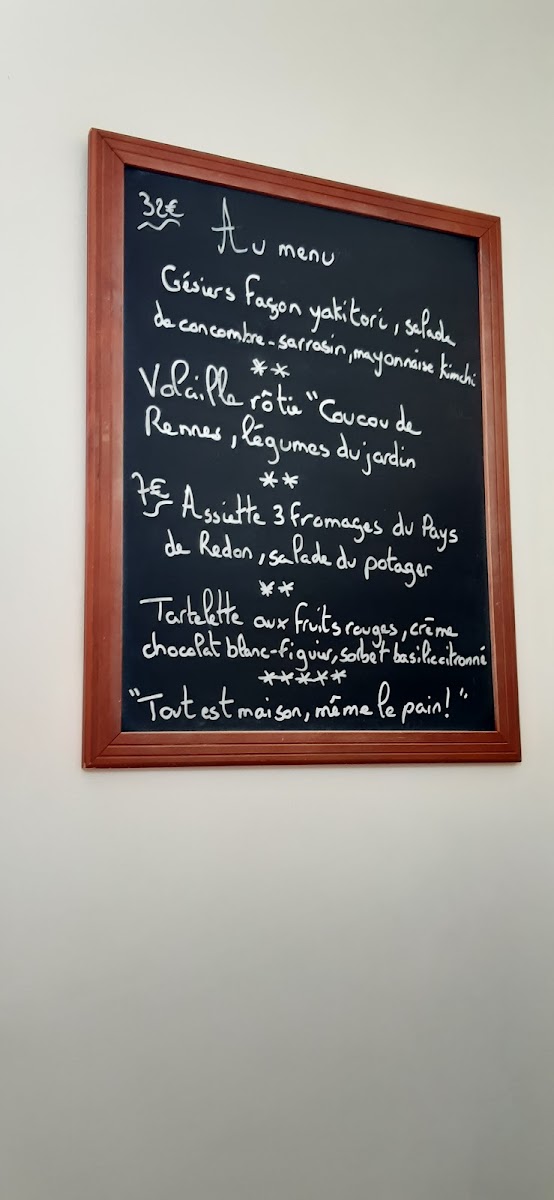 32€
Au menu
Gésiers façon yakitori, salade
de concombre-sarrasin, mayonnaise kimchi
**
Volaille rôtie "Coucou de
Rennes, légumes du jardin
**
7€ Assiette 3 fromages du Pays
de Redon, salade du potager
**
Tartelette aux fruits rouges, crème
chocolat blanc-figuier, sorbet basilic citronné
*****
"Tout est maison, même le pain!"